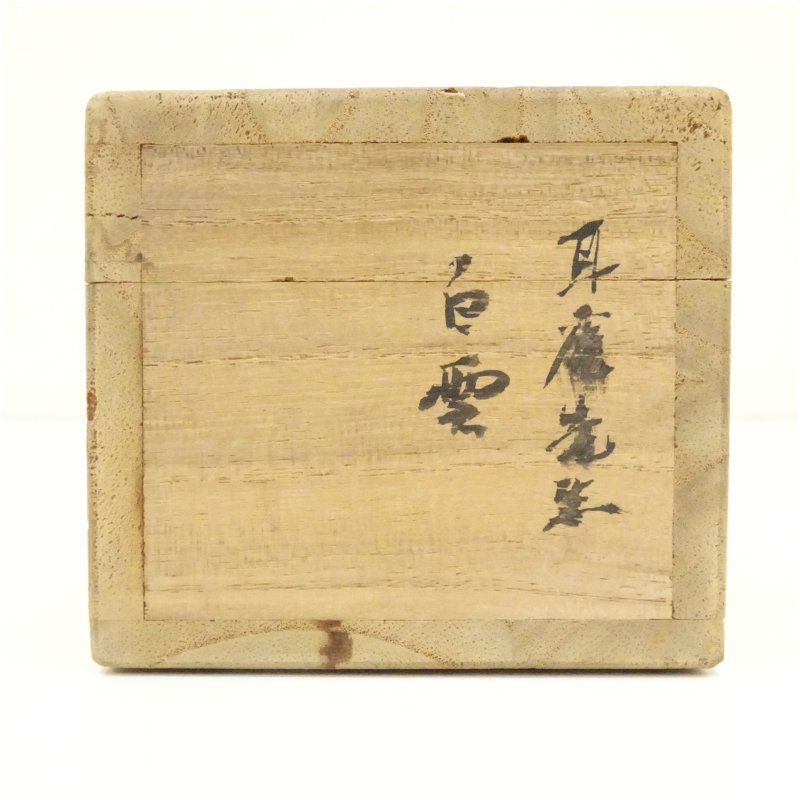 耳庵老生
白雲